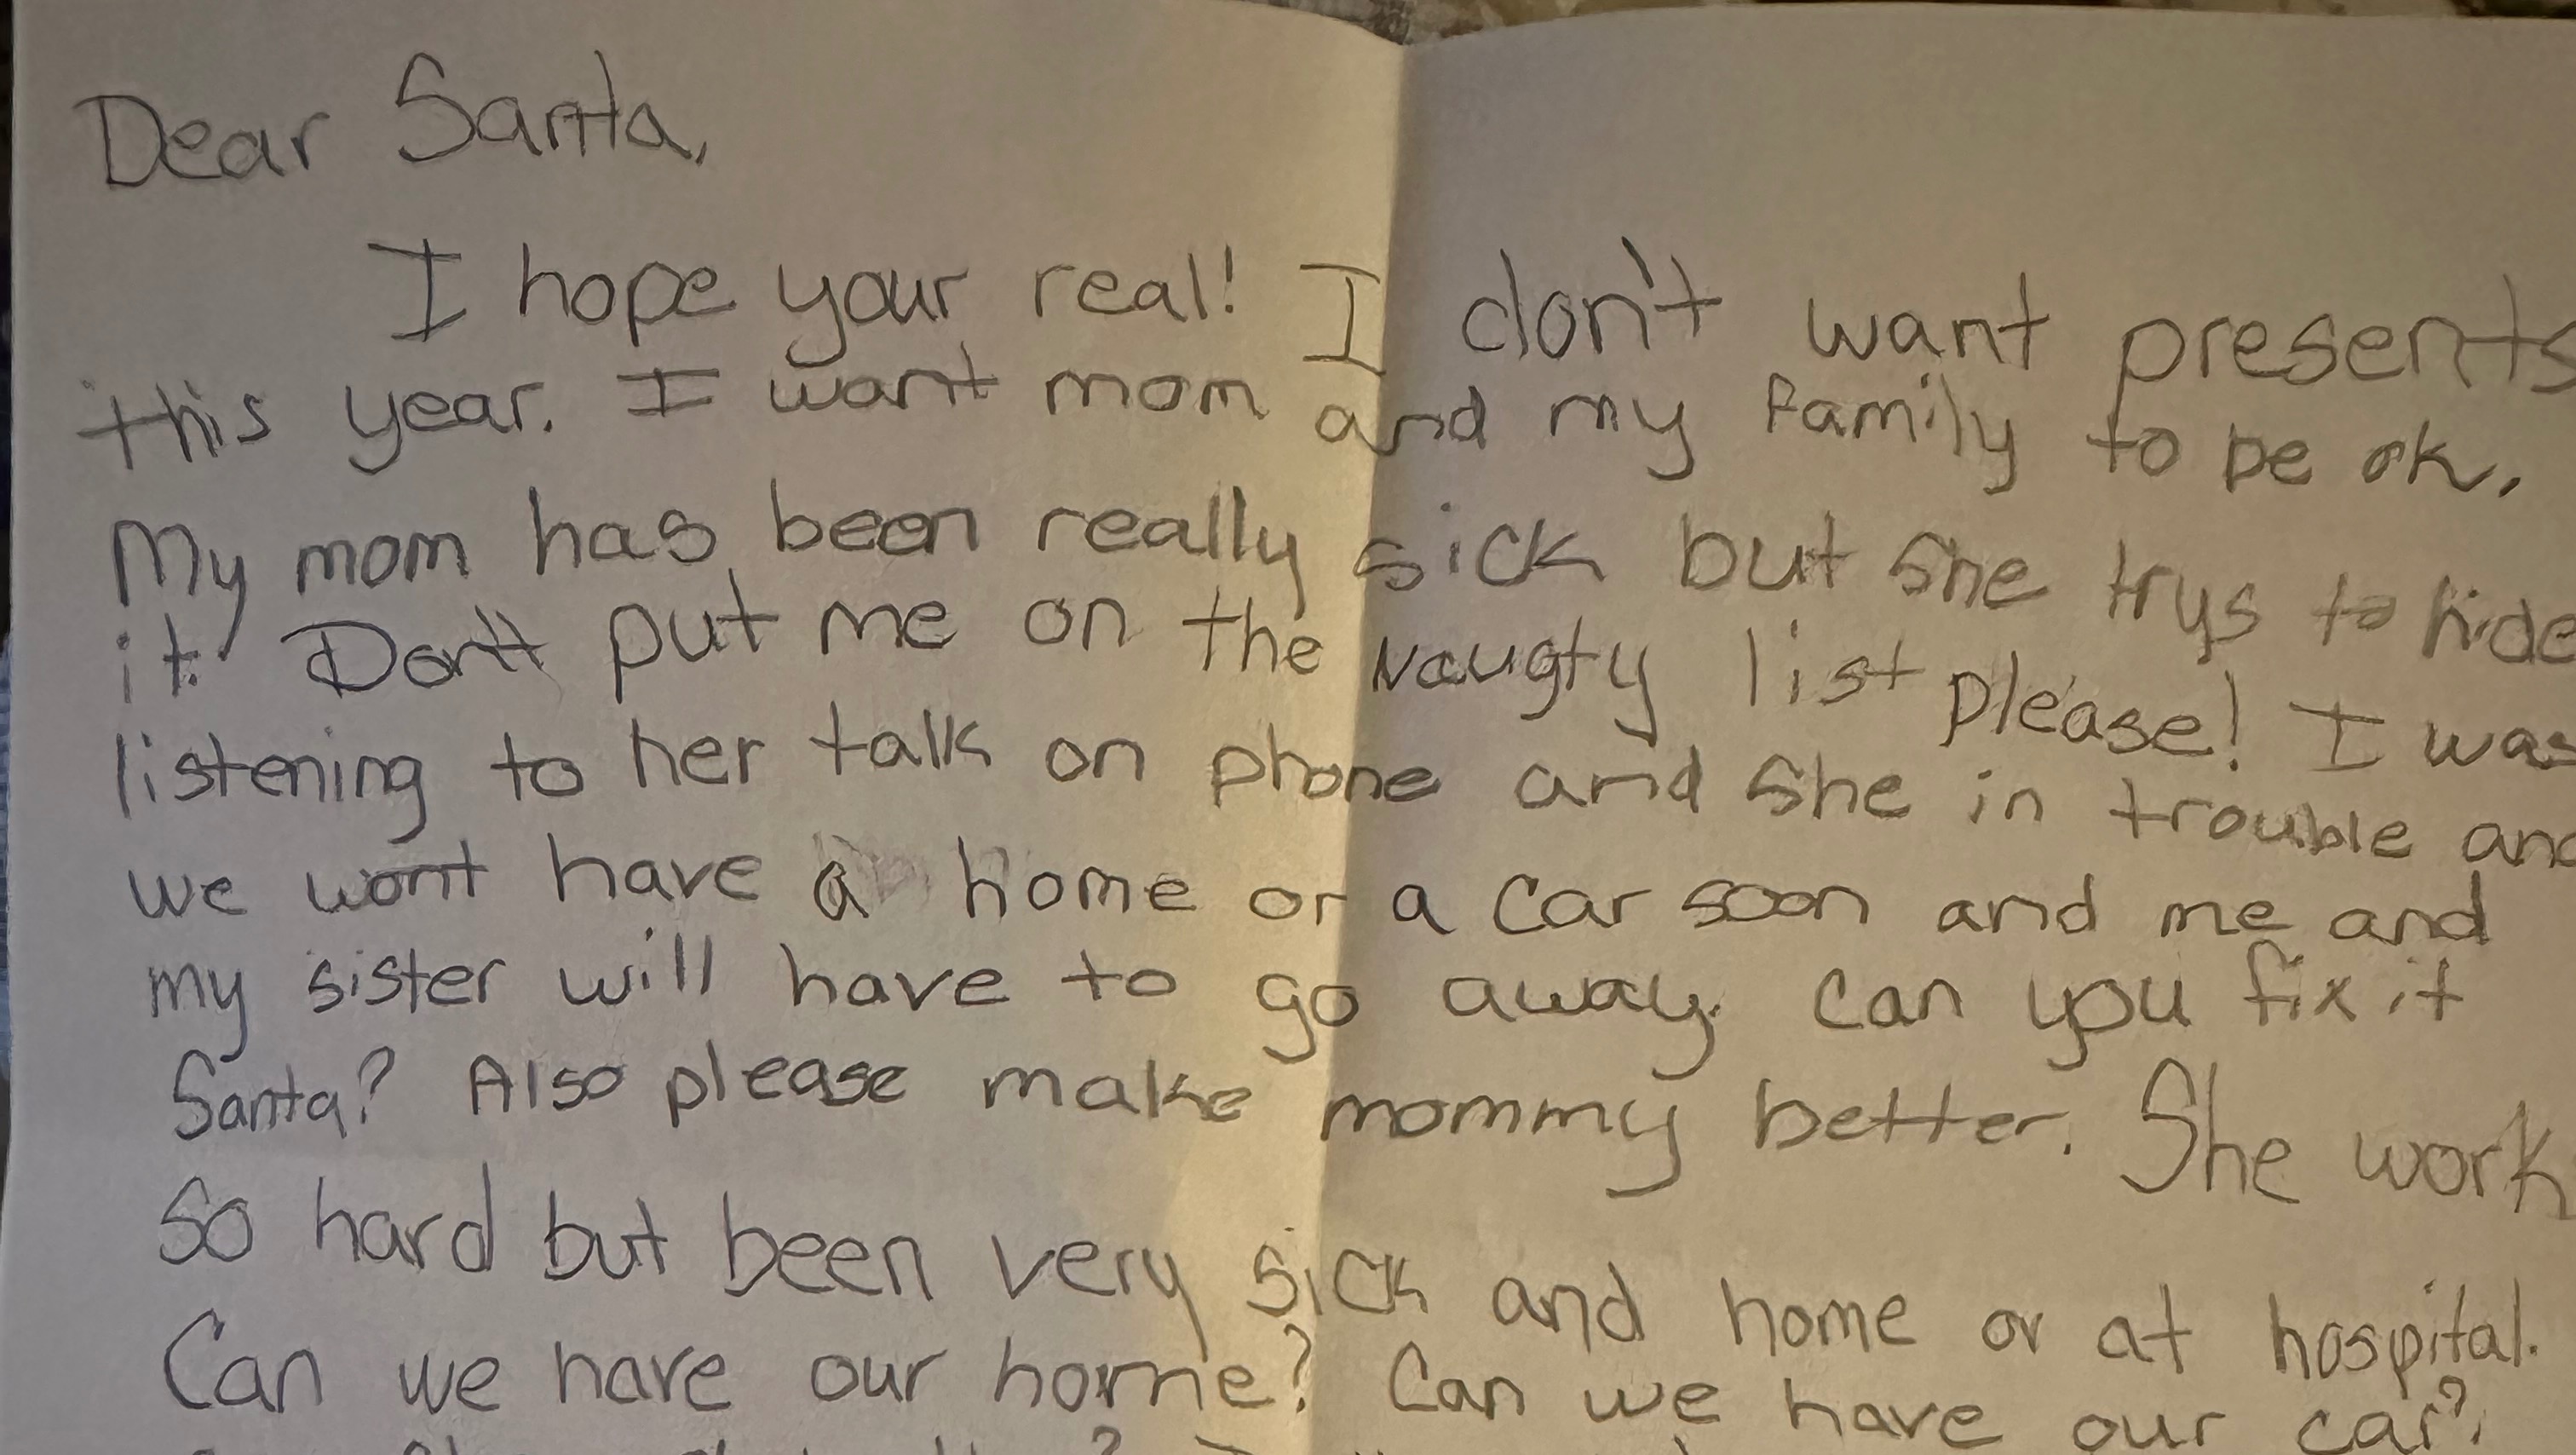 Dear Santa,
I hope your real! I don't want presents
this year. I want mom and my family to be ok.
My mom has been really sick but she trys to hide
it. Don't put me on the Naugty list please! I was
listening to her talk on phone and she in trouble and
we wont have a home or a car soon and me and
my sister will have to go away. Can you fix it
Santa? Also please make mommy better. She work
so hard but been very sick and home or at hospital.
Can we have our home? Can we have our car?